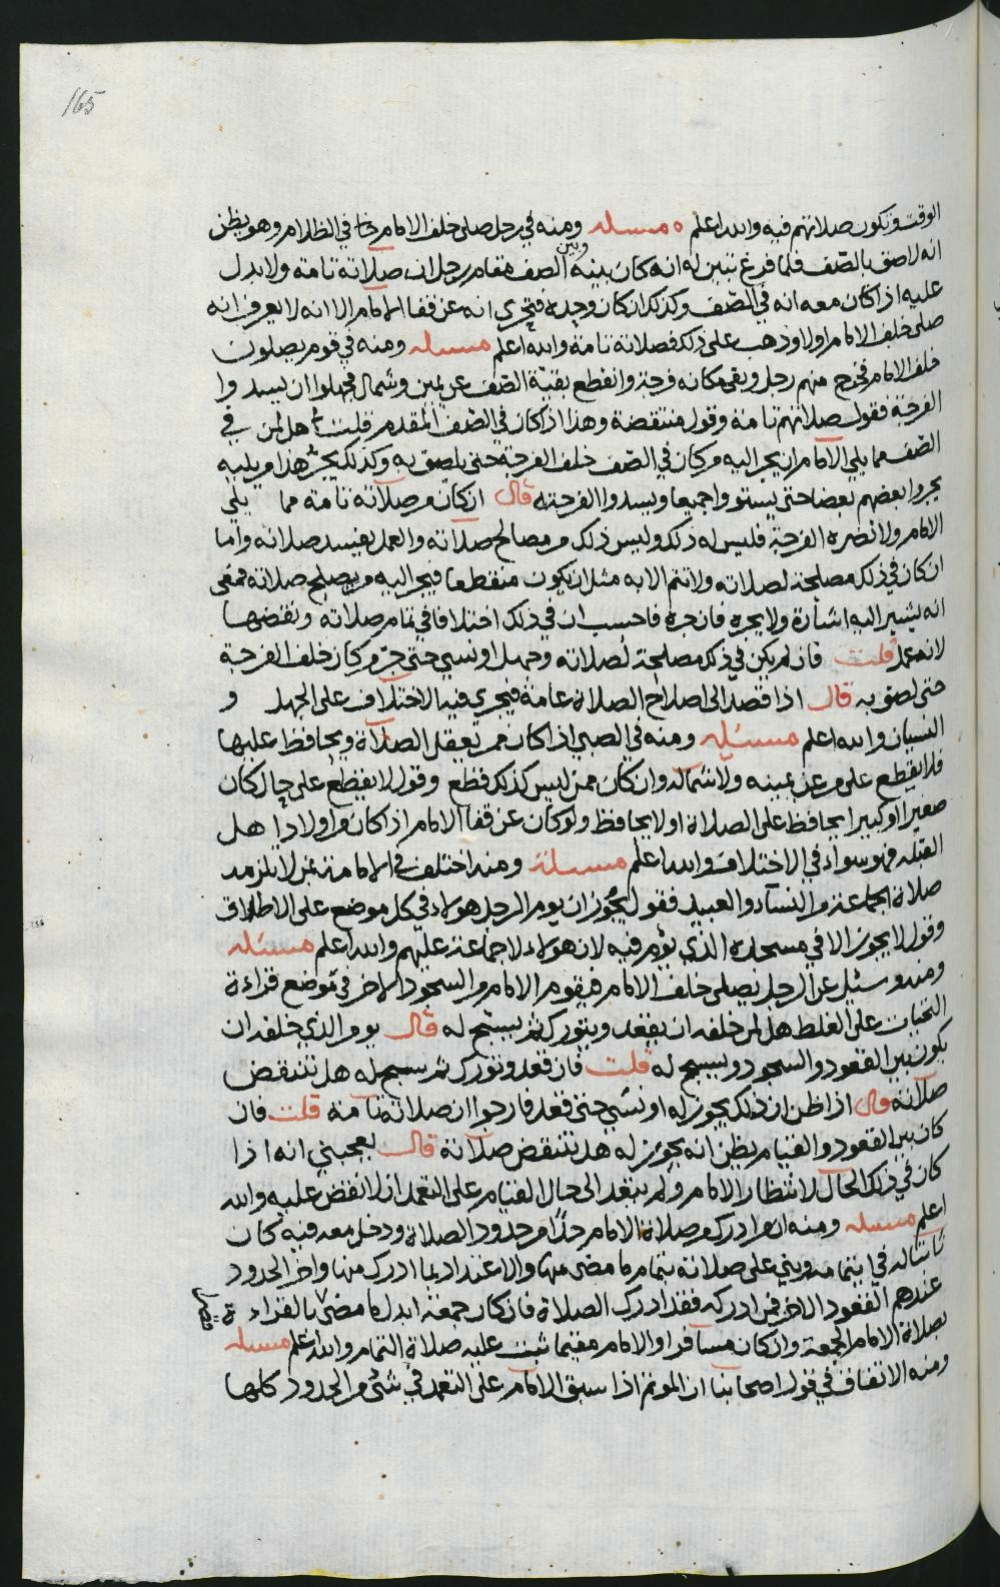 165
الوقت وتكون صلاتهم فيه والله اعلم ه مسئله ومنه في رجل صلى خلف الامام في الظلام وهو يظن
انه لاصق بالصف فلما فرغ تبين له انه كان بينه وبين الصف مقام رجل ان صلاته تامة ولا بدل
عليه اذا كان معه انه في الصف وكذلك ان كان وحده فتحرى انه عن قفا الامام الا انه لا يعرف انه
صلى خلف الامام او لا وذهب على ذلك فصلاته تامة والله اعلم مسئله ومنه في قوم يصلون
خلف الامام فخرج منهم رجل وبقى مكانه فرجة وانقطع بقية الصف عن يمين وشمال فجهلوا ان يسدوا
الفرجة فقول صلاتهم تامة وقول منتقضة وهذا اذا كان في الصف المقدم قلت هل لمن في
الصف مما يلي الامام ان يجر اليه من كان في الصف خلف الفرجة حتى يلصق به وكذلك يجر هذا من يليه
يجروا بعضهم بعضا حتى يستووا جميعا ويسدوا الفرجة قال ان كان من صلاته تامة مما يلي
الامام ولا تضره الفرجة فليس له ذلك وليس ذلك من مصالح صلاته والعمل يفسد صلاته واما
ان كان في ذلك مصلحة لصلاته ولا تتم الا به مثل ان يكون منقطعا فيجر اليه من يصلح صلاته فمعي
انه يشير اليه اشارة ولا يجره فان جره فاحسب ان في ذلك اختلافا في تمام صلاته ونقضها
لانه عمل قلت فان لم يكن في ذلك مصلحة لصلاته وجهل او نسي حتى جر من كان خلف الفرجة
حتى لصق به قال اذا قصد الى اصلاح الصلاة عامة فيجرى فيه الاختلاف على الجهل و
النسيان والله اعلم مسئله ومنه في الصبي اذا كان ممن يعقل الصلاة ويحافظ عليها
فلا يقطع على من عن يمينه ولا شماله وان كان ممن ليس كذلك قطع وقول لا يقطع على حال كان
صغيرا او كبيرا يحافظ على الصلاة او لا يحافظ ولو كان عن قفا الامام اذا كان من اولاد اهل
القبلة فهو سواء في الاختلاف والله اعلم مسئلة ومنه اختلف في الامامة بمن لا يلزمه
صلاة الجماعة من النساء والعبيد فقول يجوز ان يوم الرجل هولاء في كل موضع على الاطلاق
وقول لا يجوز الا في مسجده الذي يؤم فيه لان هولاء لا جماعة عليهم والله اعلم مسئله
ومنه وسئل عن الرجل يصلى خلف الامام فيقوم الامام من السجود الاخر في موضع قراءة
التحيات على الغلط هل لمن خلفه ان يقعد ويتورك ثم يسبح له قال يوم الذي خلفه ان
يكون بين القعود والسجود ويسبح له قلت فان قعد وتورك ثم سبح له هل تنتقض
صلاته قال اذا ظن ان ذلك يجوز له او نسي حتى قعد فارجوا ان صلاته تامة قلت فان
كان بين القعود والقيام يظن انه يجوز له هل تنتقض صلاته قال يعجبني انه اذا
كان في ذلك الحال لانتظار الامام ولم يتعد الى حال القيام على التعمد ان لا نقض عليه والله
اعلم مسئله ومنه ان من ادرك من صلاة الامام حدا من حدود الصلاة ودخل معه فيه كان
في ايتمامه ويبني على صلاته بتمام ما مضى منها والاعتداد بما ادرك منها واخر الحدود
عندهم القعود الاخر فمن ادركه فقد ادرك الصلاة فان كان جمعة ابدل ما مضى بالقراءة
بصلاة الامام الجمعة وان كان مسافرا والامام مقيما ثبت عليه صلاة التمام والله اعلم مسئله
ومنه الاتفاق في قول اصحابنا ان الموتم اذا سبق الامام على التعمد في شئ من الحدود كلها